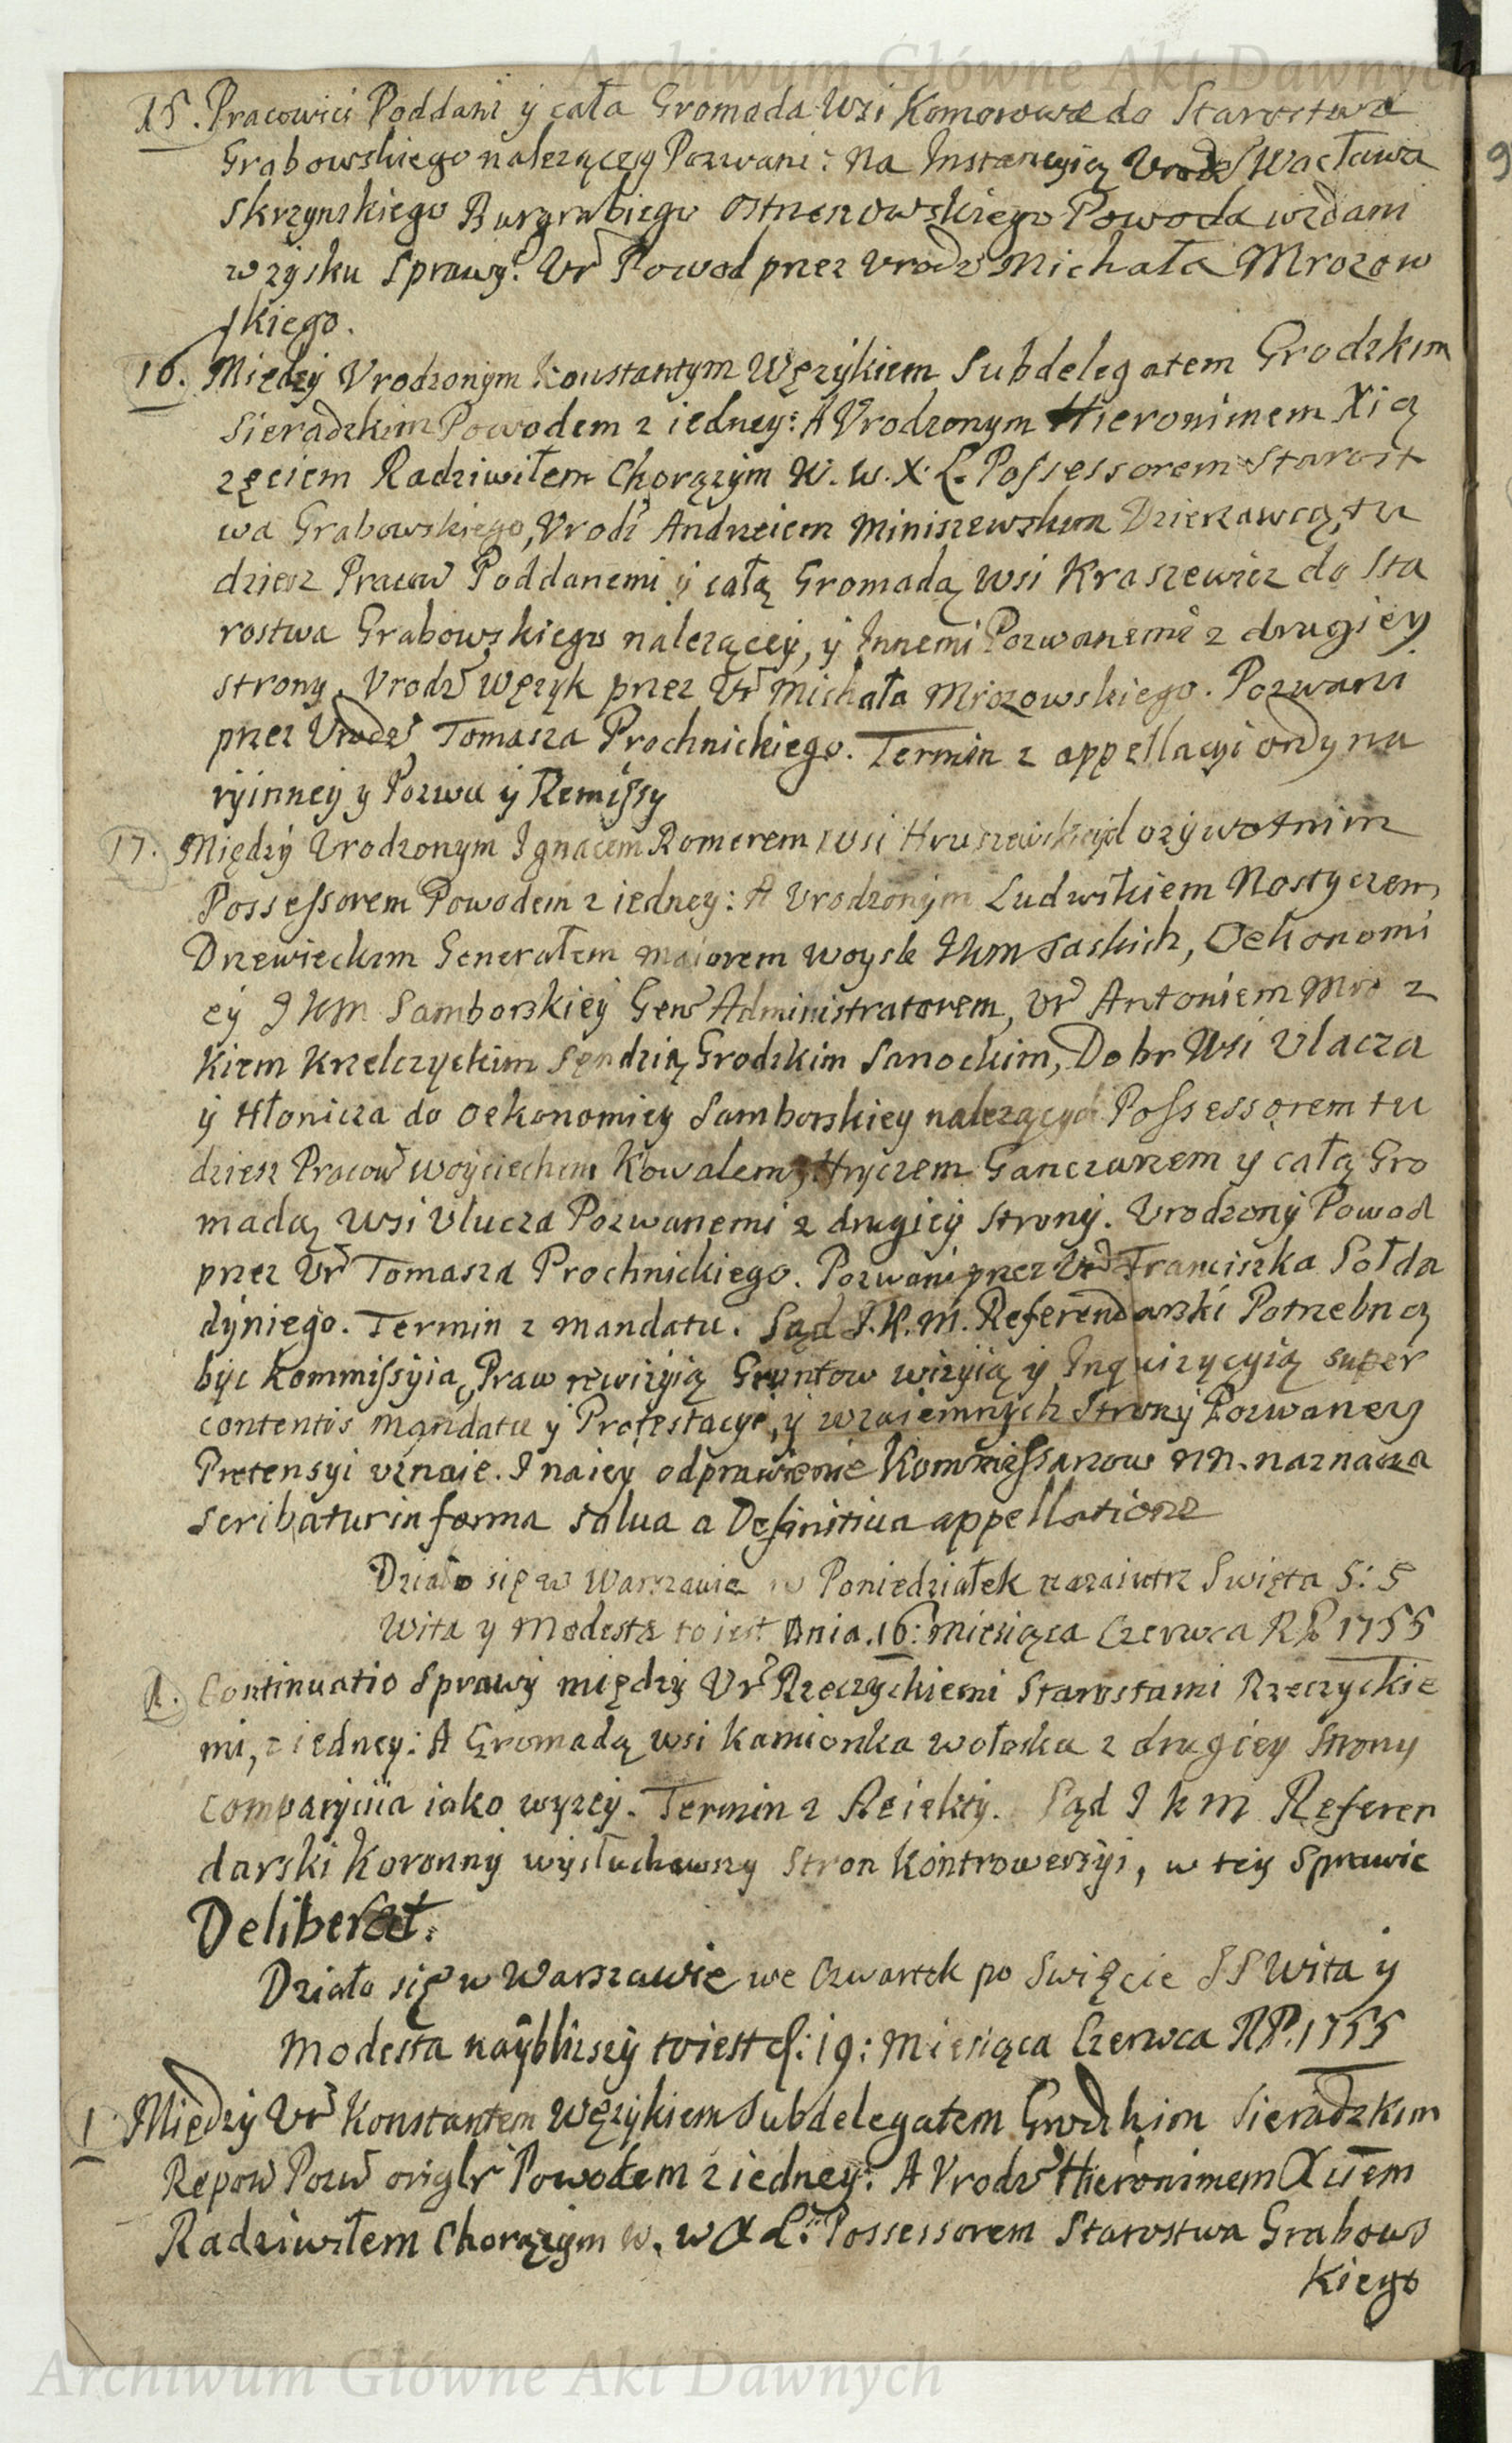 Archiwum Główne Akt Dawnych
15. Pracowici Poddani ÿ cała Gromada Wsi Komorowa do Starostwa
Grabowskiego nalezącey Pozwani: Na Instancyią Urodz Wacława
Skrzynskiego Burgrabiego Ostrzeszowskiego Powoda wzdani
w zysku Sprawy: Ur Powod przez Urodz Michała Mrozow
skiego.
16. Między Urodzonym Konstantym Węzykiem Subdelegatem Grodzkim
Sieradzkim Powodem z iedney: A Urodzonym Hieronimem Xią
zęciem Radziwiłem Chorązym W. W. X. L. Possessorem Starost
wa Grabowskiego, Urodz Andrzeiem Miniszewskim Dzierzawcą, tu
dziesz Pracow Poddanemi ÿ całą Gromadą Wsi Kraszewicz do Sta
rostwa Grabowskiego nalezącey, ÿ Innemi Pozwanemi z drugiey
strony. Urodz Węzyk przez Ur Michała Mrozowskiego. Pozwani
przez Urodz Tomasza Prochnickiego. Termin z appellacyi ordyna
ryinney y Pozwu ÿ Remissy
17. Między Urodzonym Ignacem Romerem wsi dozywotnim
Possessorem Powodem z iedney: A Urodzonym Ludwikiem Nostyczem
Drzewieckim Generałem maiorem Woysk Jkm Saskich, Oekonomi
eÿ J K M Samborskieÿ Gen Administratorem, Ur Antoniem Mro z
Kiem Krzelczyckim Sęndzią Grodzkim Sanockim, Dobr Wsi Ulacza
ÿ Hłonicza do Oekonomiey Samborskiey nalezących Possessorem tu
dziesz Pracow Woyciechem Kowalem, Hryczem Ganczarzem y całą Gro
madą Wsi Ulucza Pozwanemi z drugieÿ strony. Urodzony Powod
przez Ur Tomasza Prochnickiego. Pozwani przez Ur Franciszka Sołda
dyniego. Termin z mandatu. Sąd J. K. M. Referendarski Potrzebną
być Kommissyią, Praw rewizyią Gruntow wizyią ÿ Inquizycyią super
contentis mandatu ÿ Protestacyi, ÿ wzaiemnych Strony Pozwaney
Pretensyi uznaie. I na iey odprawienie Kommissarzow NN. naznacza
Scribatur in forma salua a Definitiua appellatione
Działo się w Warszawie w Poniedziałek nazaiutrz Swięta S: S
Wita y Modesta to iest Dnia. 16: Miesiąca Czerwca R P 1755
1. Continuatio Sprawy między Ur Rzeczyckiemi Starostami Rzeczyckie
mi, z iedney: A Gromadą wsi Kamionka wołoska z drugiey strony
Comparycia iako wyzey. Termin z Reiekty. Sąd J k m Referen
darski Koronny wysłuchawszy Stron Kontrowersyi, w tey Sprawie
Deliberat.
Działo się w Warszawie we Czwartek po Swięcie SS Wita y
Modesta naÿblizszÿ to iest d: 19: Miesiąca Czerwca RP. 1755
1 Między Ur Konstantem Węzykiem Subdelegatem Grodzkim Sieradzkim
Repow Pozw origlr Powodem z iedney: A Urodz Hieronimem Xciem
Radziwiłem Chorązym W. W X L. Possessorem Starostwa Grabows
kiego
9
Archiwum Główne Akt Dawnych